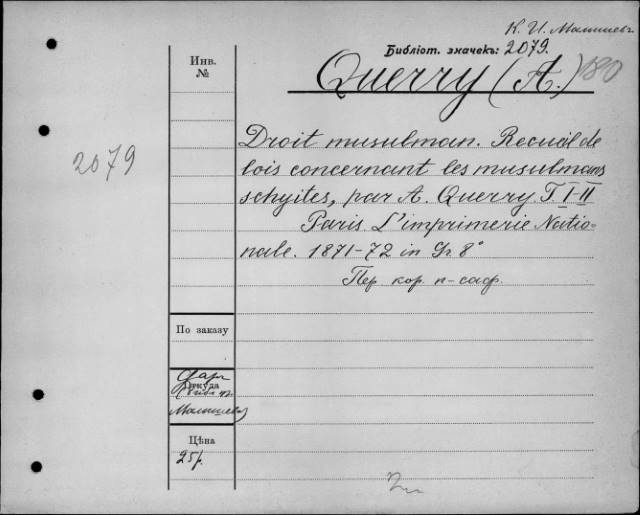 К. И. Малышевъ
Библіот. значекъ: 2079.
Инв.
№
Querry (A.) 180
2079
Droit musulman. Recueil de
lois concernant les musulmans
schyites, par A. Querry. T. I-II
Paris. L'imprimerie Natio-
nale. 1871-72 in Gr. 8°
Пер. кор. п-саф.
По заказу
Даръ
Откуда
Малышева
Цѣна
25 р.